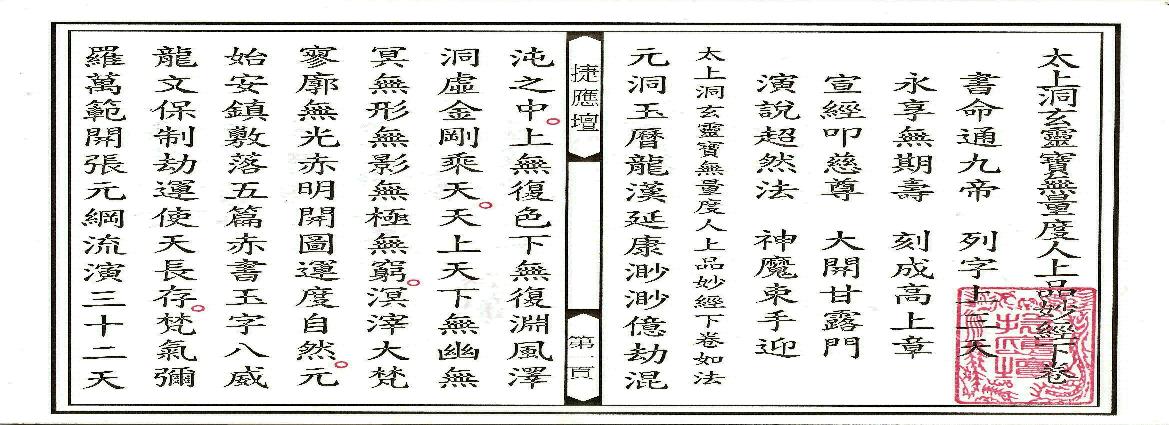 太上洞玄靈寶無量度人上品妙經下卷
書命通九帝　列字上三天
永享無期壽　刻成高上章
宣經叩慈尊　大開甘露門
演說超然法　神魔束手迎
太上洞玄靈寶無量度人上品妙經下卷如法
元洞玉曆龍漢延康渺渺億劫混
捷應壇
第一頁
沌之中上無復色下無復淵風澤
洞虛金剛乘天天上天下無幽無
冥無形無影無極無窮溟涬大梵
寥廓無光赤明開圖運度自然元
始安鎮敷落五篇赤書玉字八威
龍文保制劫運使天長存梵氣彌
羅萬範開張元綱流演三十二天